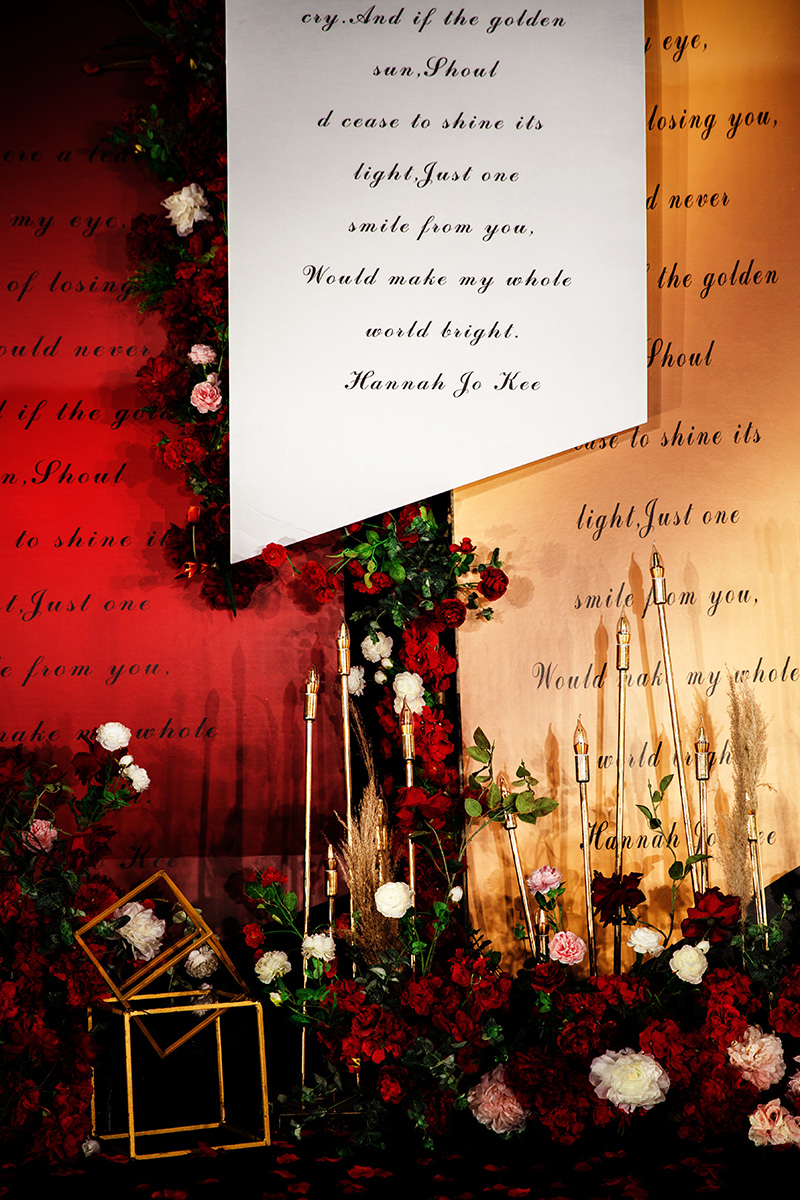 cry.And if the golden
sun,Shoul
d cease to shine its
light,Just one
smile from you,
Would make my whole
world bright.
Hannah Jo Kee
ere a tear
my eye.
of losing
ould never
d if the gol
n,Shoul
to shine it
t,Just one
e from you.
make my whole
Jo Kee
y eye,
losing you,
d never
f the golden
Shoul
ease to shine its
light,Just one
smile from you,
Would make my whole
world bright
Hannah Jo Kee